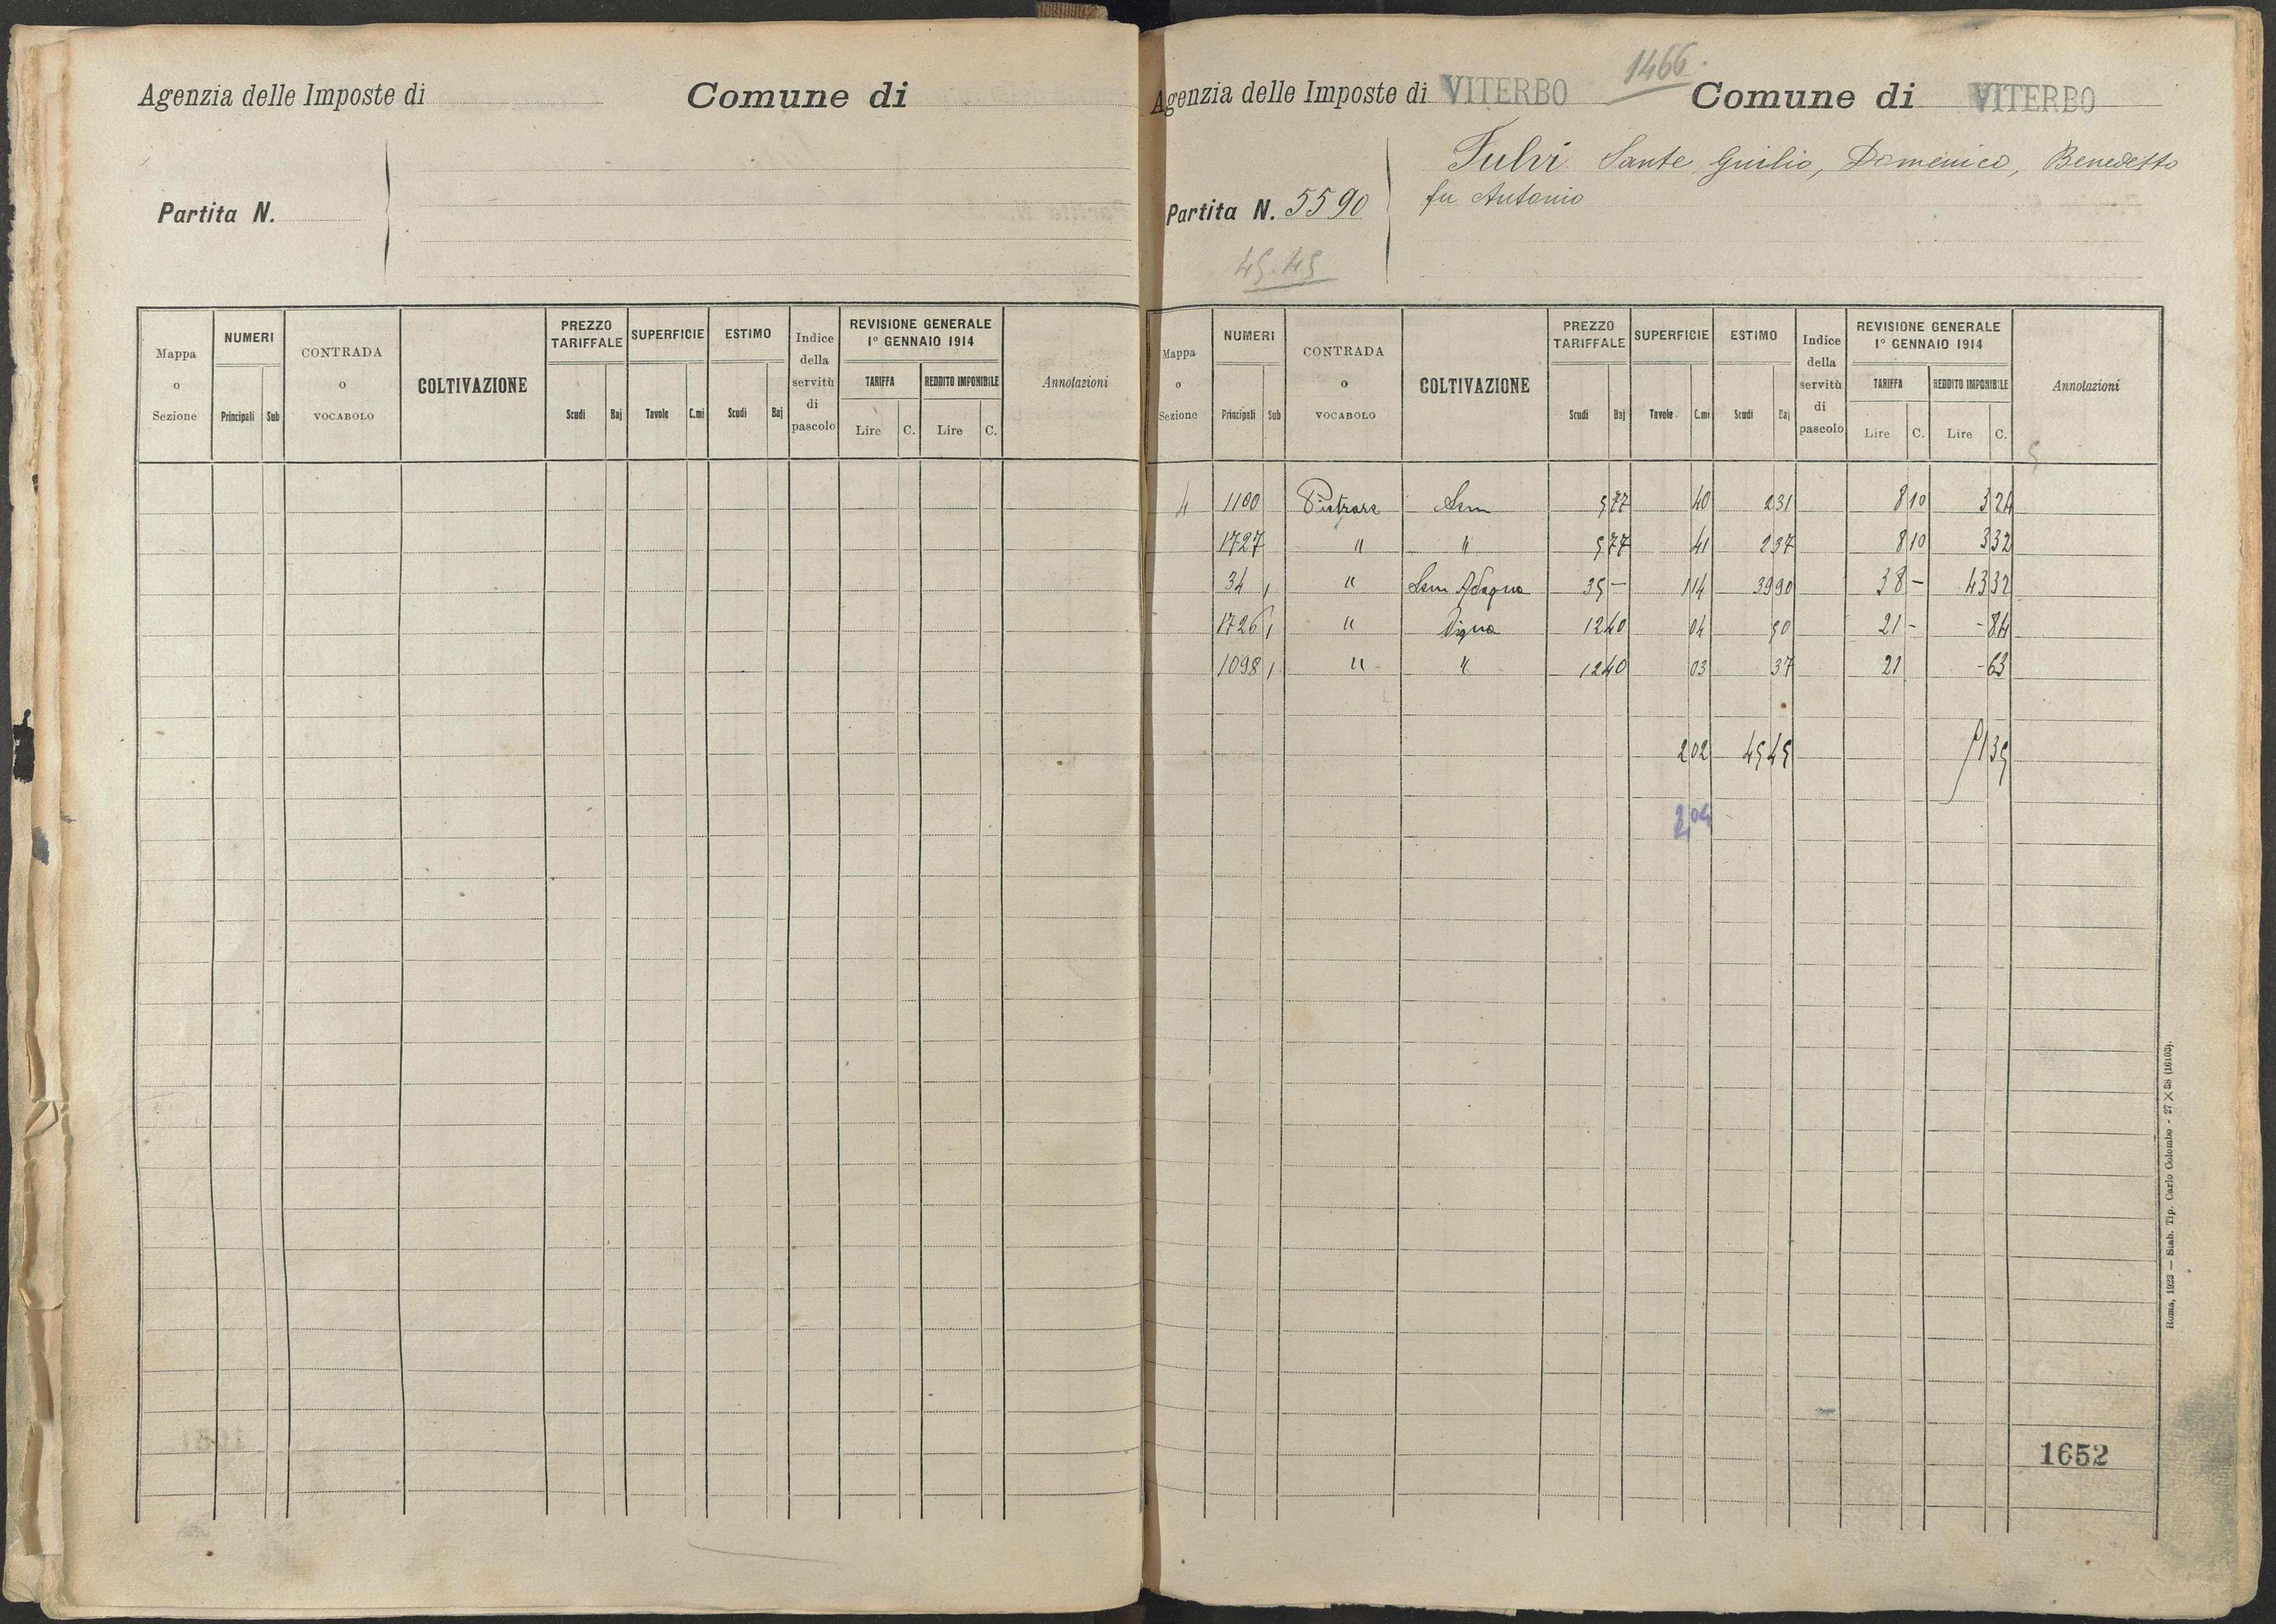 Agenzia delle Imposte di Comune di
Partita N.
Mappa o Sezione
NUMERI
Principali Sub
CONTRADA o VOCABOLO
COLTIVAZIONE
PREZZO TARIFFALE
Scudi Baj
SUPERFICIE
Tavole C.mi
ESTIMO
Scudi Baj
Indice della servitù di pascolo
REVISIONE GENERALE
1° GENNAIO 1914
TARIFFA REDDITO IMPONIBILE
Lire C. Lire C.
Annotazioni
1466
Agenzia delle Imposte di VITERBO Comune di VITERBO
Fulvi Sante, Giulio, Domenico, Benedetto
fu Antonio
Partita N. 5590
45.45
Mappa o Sezione
NUMERI
Principali Sub
CONTRADA o VOCABOLO
COLTIVAZIONE
PREZZO TARIFFALE
Scudi Baj
SUPERFICIE
Tavole C.mi
ESTIMO
Scudi Baj
Indice della servitù di pascolo
REVISIONE GENERALE
1° GENNAIO 1914
TARIFFA REDDITO IMPONIBILE
Lire C. Lire C.
Annotazioni
4 1100 Pietrare Sem 5 77 40 2 31 8 10 3 24
1727 " " 5 77 41 2 37 8 10 3 32
34 1 " Sem Adaqua 35 — 1 14 39 90 38 — 43 32
1726 1 " Vigna 12 40 04 50 21 - - 84
1098 1 " " 12 40 03 37 21 - 63
2 02 45 45 51 35
2,04
Roma, 1923 — Stab. Tip. Carlo Colombo - 27 X 38 (16103).
1652